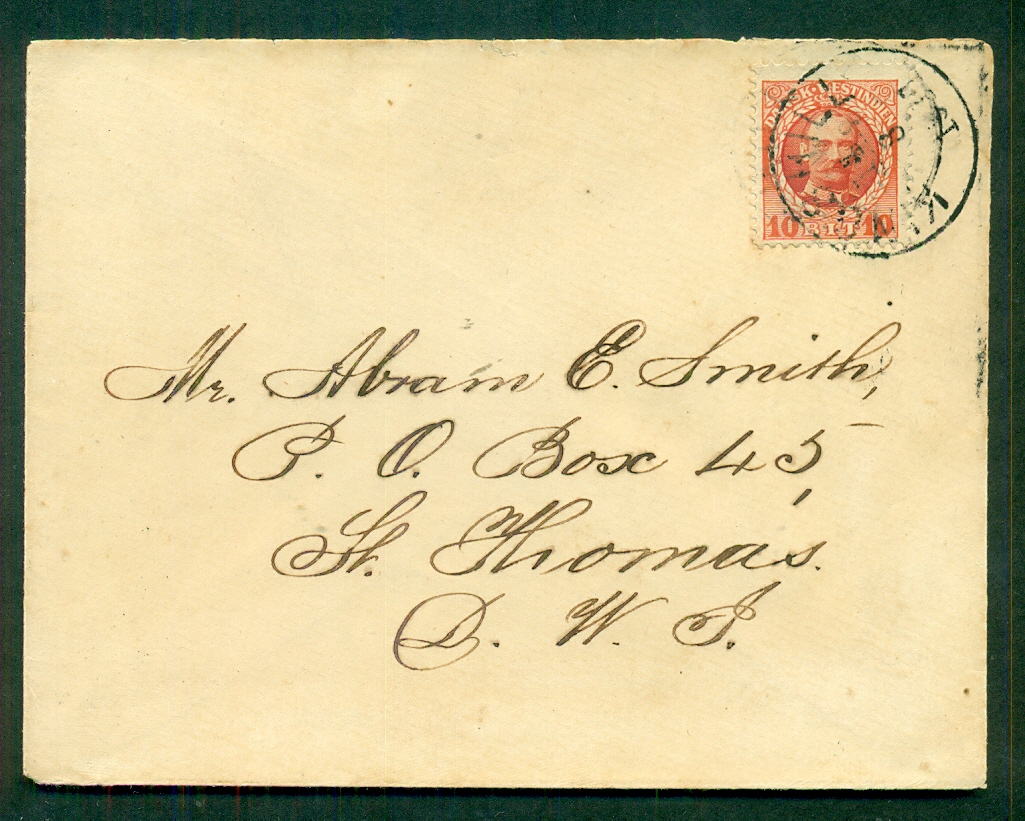 DANSK-VESTINDIEN
10 BIT 10
Mr. Abram E. Smith,
P. O. Box 45,
St. Thomas.
D. W. I.